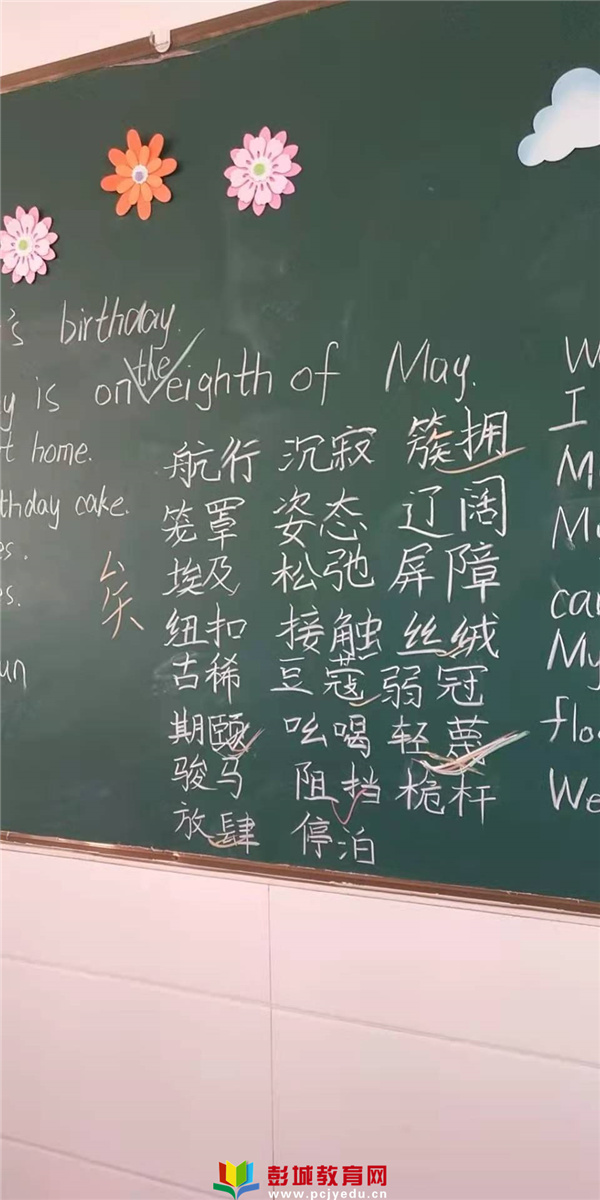 's birthday.
y is on the eighth of May.
t home.
thday cake.
es.
es.
un
航行 沉寂 簇拥
笼罩 姿态 辽阔
埃及 松弛 屏障
纽扣 接触 丝绒
古稀 豆蔻 弱冠
期颐 吆喝 轻蔑
骏马 阻挡 桅杆
放肆 停泊
矣
W
I
M
Mo
can
My
floo
We
彭城教育网
www.pcjyedu.cn